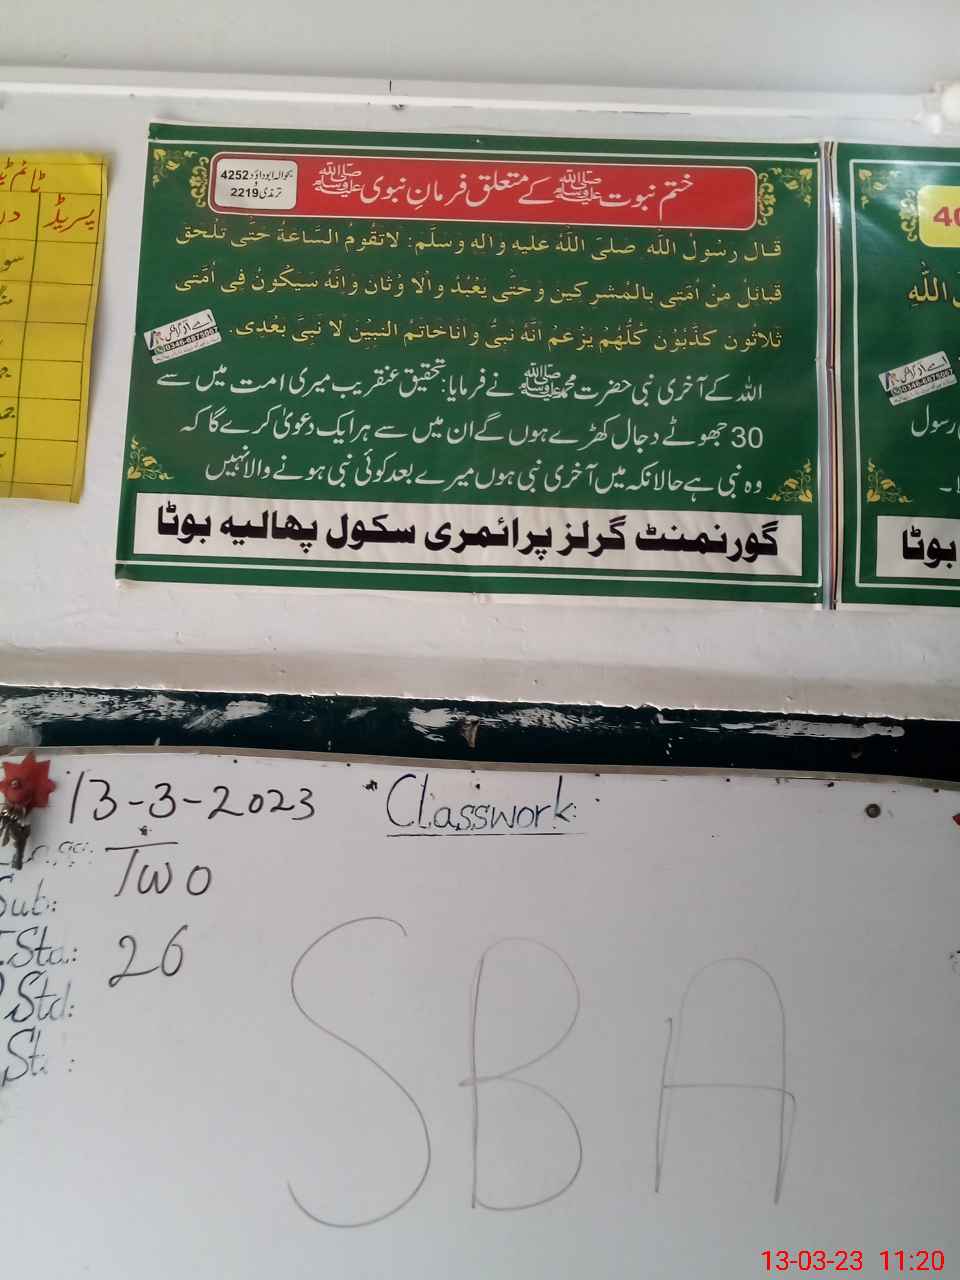 ٹائم ٹیبل
پیریڈ
ختم نبوت ﷺ کے متعلق فرمانِ نبوی ﷺ
بحوالہ ابوداؤد 4252
و
ترمذی 2219
قَالَ رَسُولُ اللّٰهِ صلیَ اللّٰهُ علیهِ وَاٰلهِ وسلَّم: لاَتَقُومُ السَّاعَةُ حَتّٰی تَلْحَقَ
قَبَائِلُ مِنْ اُمَّتِی بِالمُشرِکِینَ وَحَتّٰی یَعْبُدُ وْالا وْثَان وَاِنَّهُ سَیَکُونُ فِی اُمَّتِی
ثَلَاثُون کَذَّبُوْن کُلُّهُم یَزْعَمُ اَنَّهُ نَبِیُّ وَاَنَاخَاتَمُ النبِیّنَ لَا نَبِیَّ بَعْدِی.
اللہ کے آخری نبی حضرت محمد ﷺ نے فرمایا: تحقیق عنقریب میری امت میں سے
30 جھوٹے دجال کھڑے ہوں گے ان میں سے ہر ایک دعویٰ کرے گا کہ
وہ نبی ہے حالانکہ میں آخری نبی ہوں میرے بعد کوئی نبی ہونے والا نہیں
0346-6875067
گورنمنٹ گرلز پرائمری سکول پھالیہ بوٹا
40
اللّٰه
0346-6875067
رسول
بوٹا
13-3-2023
Classwork:
Two
Sub:
Std: 26
Std:
St :
SBA
13-03-23 11:20